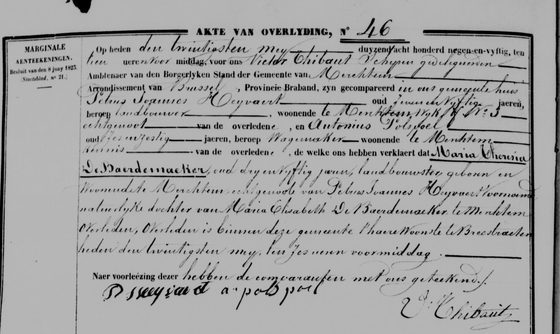 AKTE VAN OVERLYDING, Nº 46
MARGINALE
AENTEEKENINGEN.
Besluit van den 8 juny 1823.
Op heden den twintigsten mey duyzend acht honderd negen-en-vyftig, ten
ure voor middag, voor ons Victor Thibaut Schepen gedelegeerden
Ambtenaer van den Borgerlyken Stand der Gemeente van Merchtem
Arrondissement van Brussel, Provincie Braband, zyn gecompareerd in ons gemeente huis
Petrus Joannes Heyvaert oud jaeren,
beroep landbouwer, woonende te Merchtem Wyk Nº 3
echtgenoot van de overledene, en Antonius Polspoel
oud jaeren, beroep Wagemaker woonende te Merchtem
kennis van de overledene, de welke ons hebben verklaerd dat Maria Theresia
De Baerdemaeker, oud vyftig jaren, landbouwster geboren en
Woonende te Merchtem echtgenoote van Petrus Joannes Heyvaert voornoemd
natuerlyke dochter van Maria Elisabeth De Baerdemaeker te Merchtem
Overleden, Overleden is binnen deze gemeente t'haere Woonste te
heden den twintigsten mey, ten zes uren voormiddag.
Naer voorleézing dezer hebben de comparanten met ons geteekend.
a. polspoel
V. Thibaut